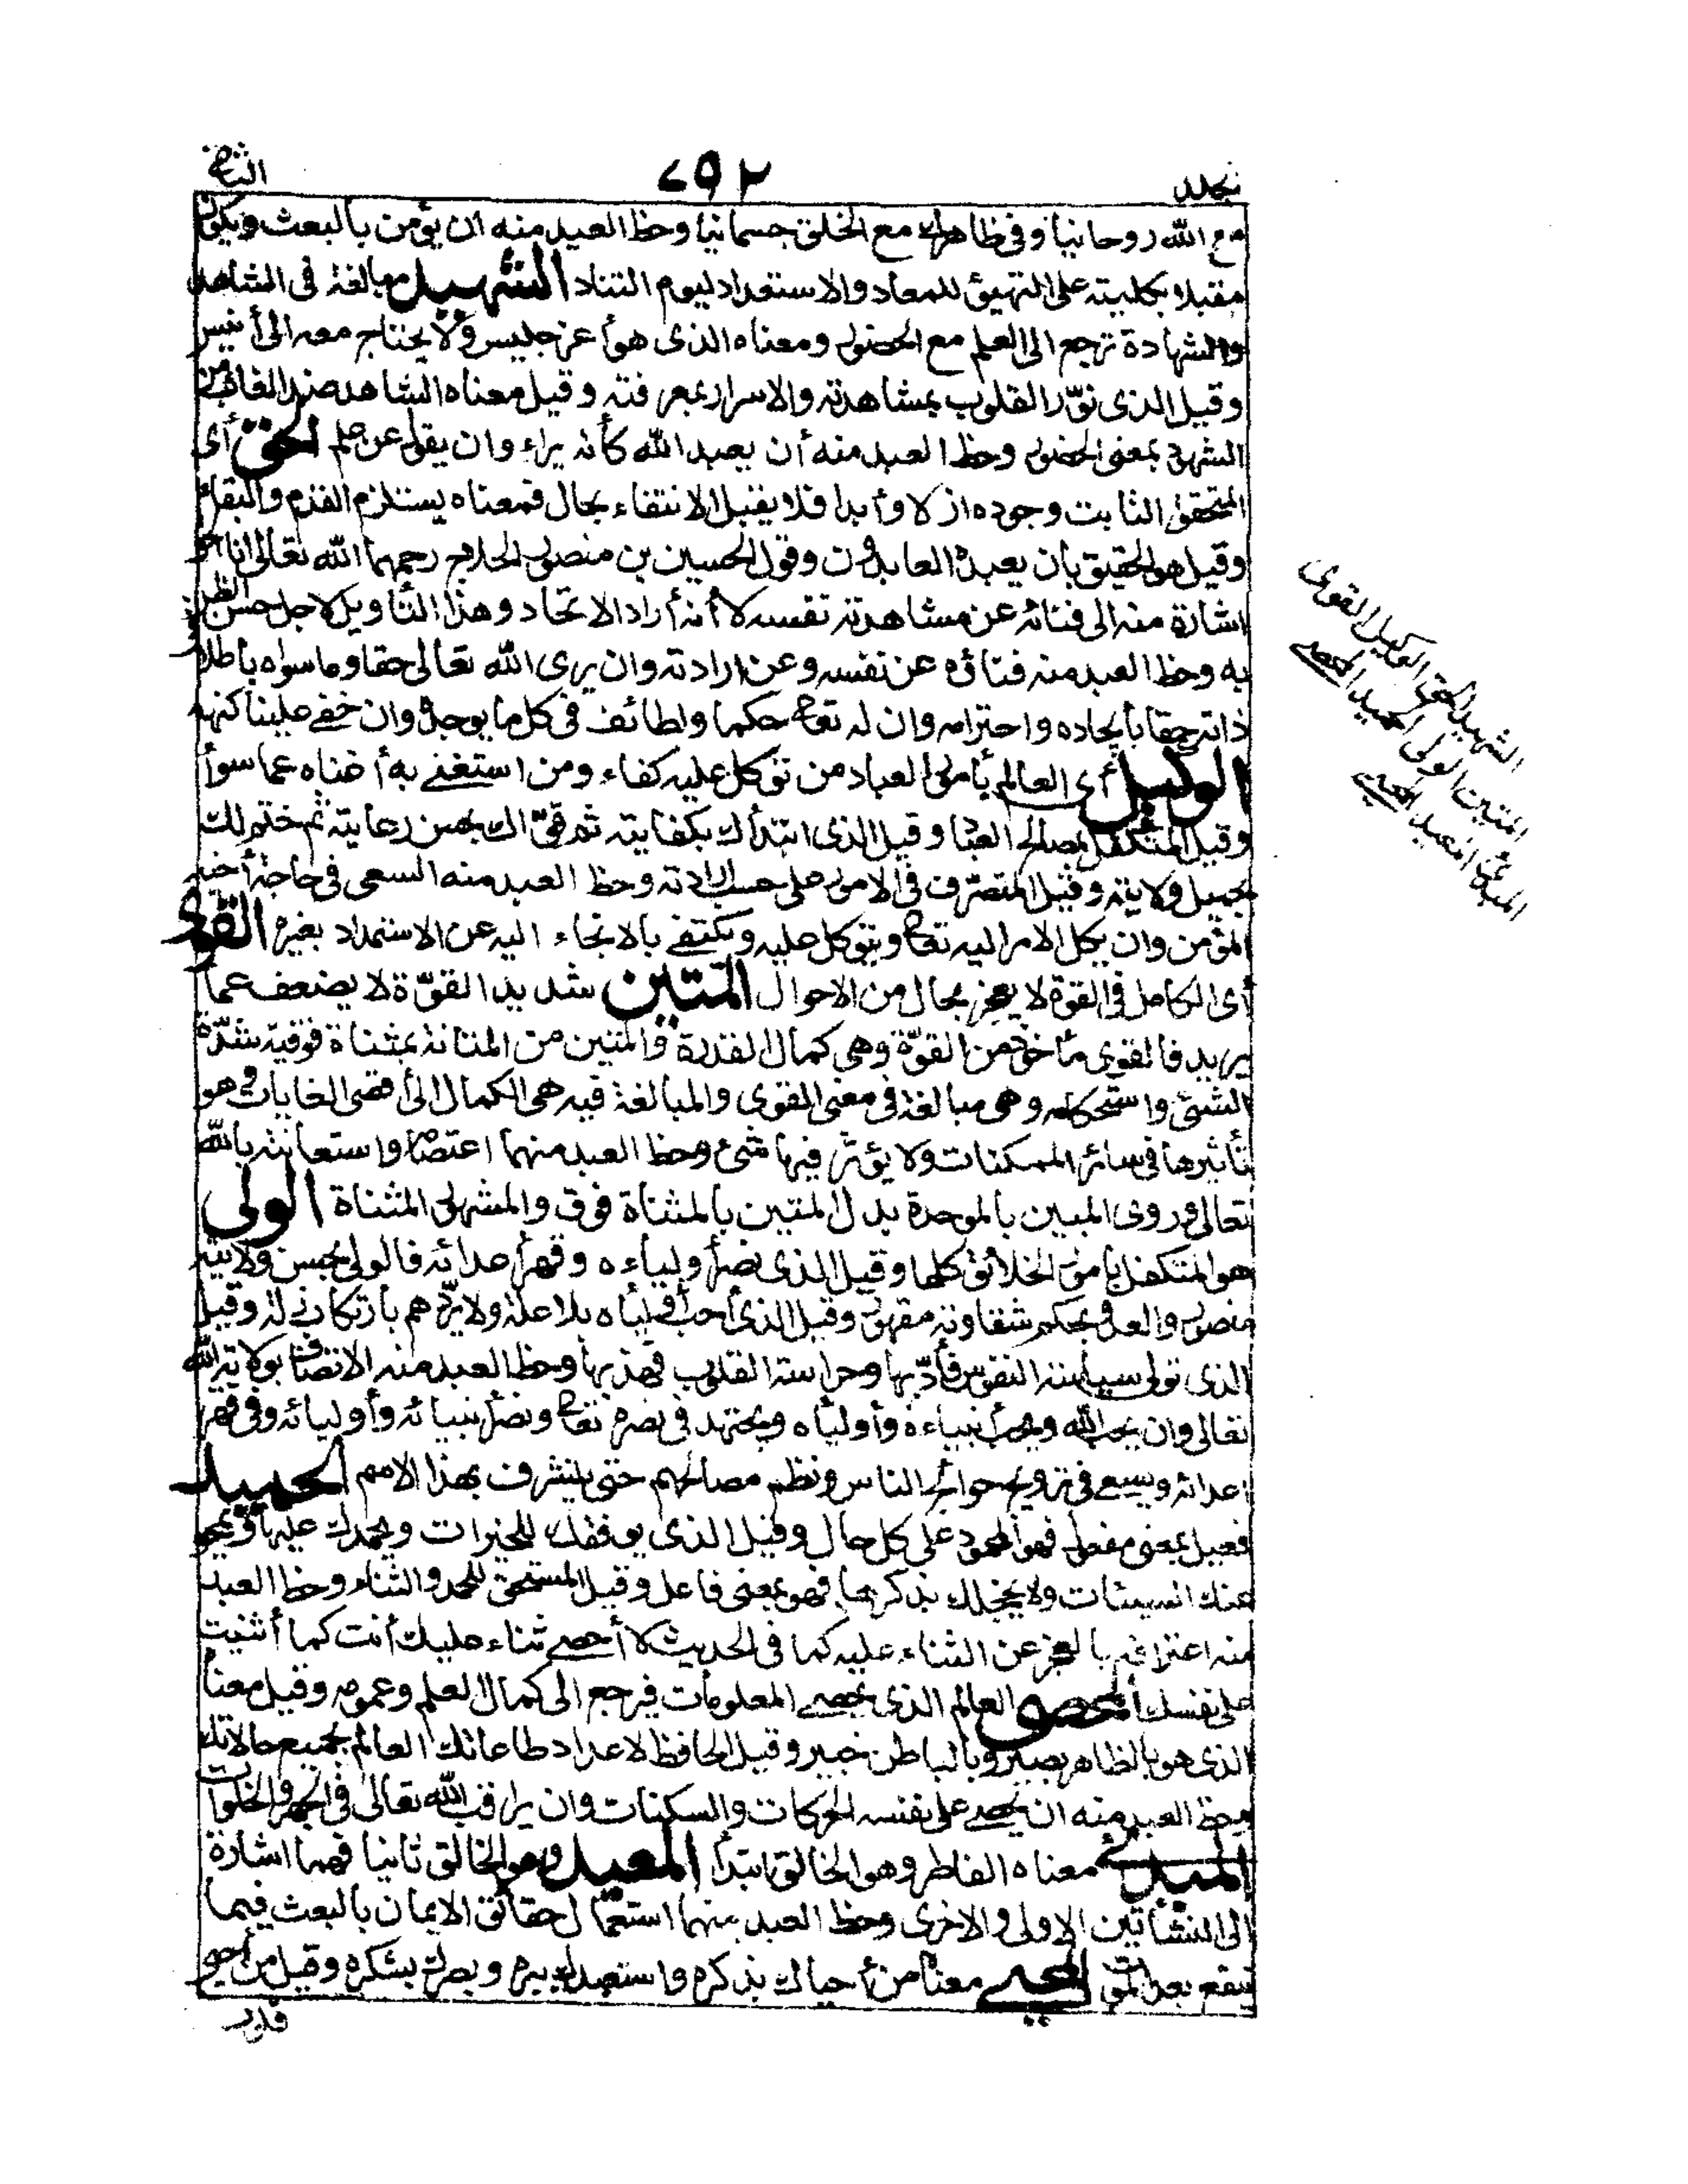 مع الله روحانيا وفى ظاهره مع الخلق جسمانيا وحظ العبد منه ان يؤمن بالبعث ويكون
مقبلا بكليته على التهيئ للمعاد والاستعداد ليوم التناد الشهيد مبالغة فى الشاهد
والشهادة ترجع الى العلم مع الحضور ومعناه الذى هو أعز جليس ولا يحتاج معه الى أنيس
وقيل الذى نوّر القلوب بمشاهدته والاسرار بمعرفته وقيل معناه الشاهد ضد الغائب من
الشهود بمعنى الحضور وحظ العبد منه أن يعبد الله كأنه يراه وان يقول عن علم الحق أى
المتحقق الثابت وجوده ازلا وأبدا فلا يقبل الانتفاء بحال فمعناه يستلزم القدم والبقاء
وقيل هو الحقيق بأن يعبده العابدون وقول الحسين بن منصور الحلاج رحمهما الله تعالى انا الحق
اشارة منه الى فنائه عن مشاهدته نفسه لا أنه أراد الاتحاد وهذا التأويل لاجل حسن الظن
به وحظ العبد منه فناؤه عن نفسه وعن ارادته وان يرى الله تعالى حقا وما سواه باطلا
ذاته حقا بأيجاده واحترامه وان له تعالى حكما ولطائف فى كل ما يوجده وان خفى علينا كنهه
الوكيل أى العالم بأمور العباد من توكل عليه كفاه ومن استغنى به أغناه عما سواه
وقيل المتكفل بمصالح العباد وقيل الذى ابتدأك بكفايته ثم تولاك بحسن رعايته ثم ختم لك
بجميل ولايته وقيل المتصرف فى الامور على حسب ارادته وحظ العبد منه السعى فى حاجة أخيه
المؤمن وان يكل الامر اليه تعالى ويتوكل عليه ويكتفى بالالتجاء اليه عن الاستمداد بغيره القوى
أى الكامل فى القوة لا يعجز بحال من الاحوال المتين شديد القوّة لا يضعف عما
يريد فالقوى مأخوذ من القوّة وهى كمال القدرة والمتين من المتانة بمثناة فوقية شدّة
الشئ واستحكامه وهى مبالغة فى معنى القوى والمبالغة فيه هى الكمال الى أقصى الغايات هو
تأثيرها فى سائر الممكنات ولا يؤثر فيها شئ وحظ العبد منهما اعتصامه واستعانته بالله
تعالى وروى المبين بالموحدة بدل المتين بالمثناة فوق والمشهور المثناة الولى
هو المتكفل بأمور الخلائق كلها وقيل الذى نصر أولياءه وقهر أعدائه فالولى بحسن ولايته
منصور والعدو بحكم شقاوته مقهور وقيل الذى أحب أولياءه بلا علة ولا يردّهم بارتكاب زلة وقيل
الذى تولى سياسة النفوس فأدّبها وحراسة القلوب فهذبها وحظ العبد منه الاتصاف بولاية الله
تعالى وان يحب الله ويحب أنبياءه وأولياه ويجتهد فى نصره تعالى ونصر أنبيائه وأوليائه وفى قهر
اعدائه ويسعى فى ترويج حوائج الناس ونظم مصالحهم حتى يتشرف بهذا الاسم الحميد
فعيل بمعنى مفعول فهو المحمود على كل حال وقيل الذى يوفقك للخيرات ويحمدك عليها ويمحو
عنك السيئات ولا يخجلك بذكرها فهو بمعنى فاعل وقيل المستحق للحمد والثناء وحظ العبد
منه اعترافه بالعجز عن الثناء عليه كما فى الحديث لا أحصى ثناء عليك أنت كما أثنيت
على نفسك المحصى العالم الذى يحصى المعلومات فيرجع الى كمال العلم وعمومه وقيل معناه
الذى هو بالظاهر بصير وبالباطن خبير وقيل الحافظ لاعداد طاعاتك العالم بجميع حالاتك
وحظ العبد منه ان يحصى على نفسه الحركات والسكنات وان يراقب الله تعالى فى الجهر والخلوات
المبدئ معناه الفاطر وهو الخالق ابتدأ المعيد وهو الخالق ثانيا فهما اشارة
الى النشأتين الاولى والاخرى وحظ العبد منهما استعمال حقائق الايمان بالبعث فيما
ينفع بعد الموت المحيى معناه من أحياك بذكره واستعبدك ببره وبصرك بشكره وقيل من أحيى
الشهيد الحق الوكيل القوى
المتين الولى الحميد المحصى
المبدئ المعيد المحيى